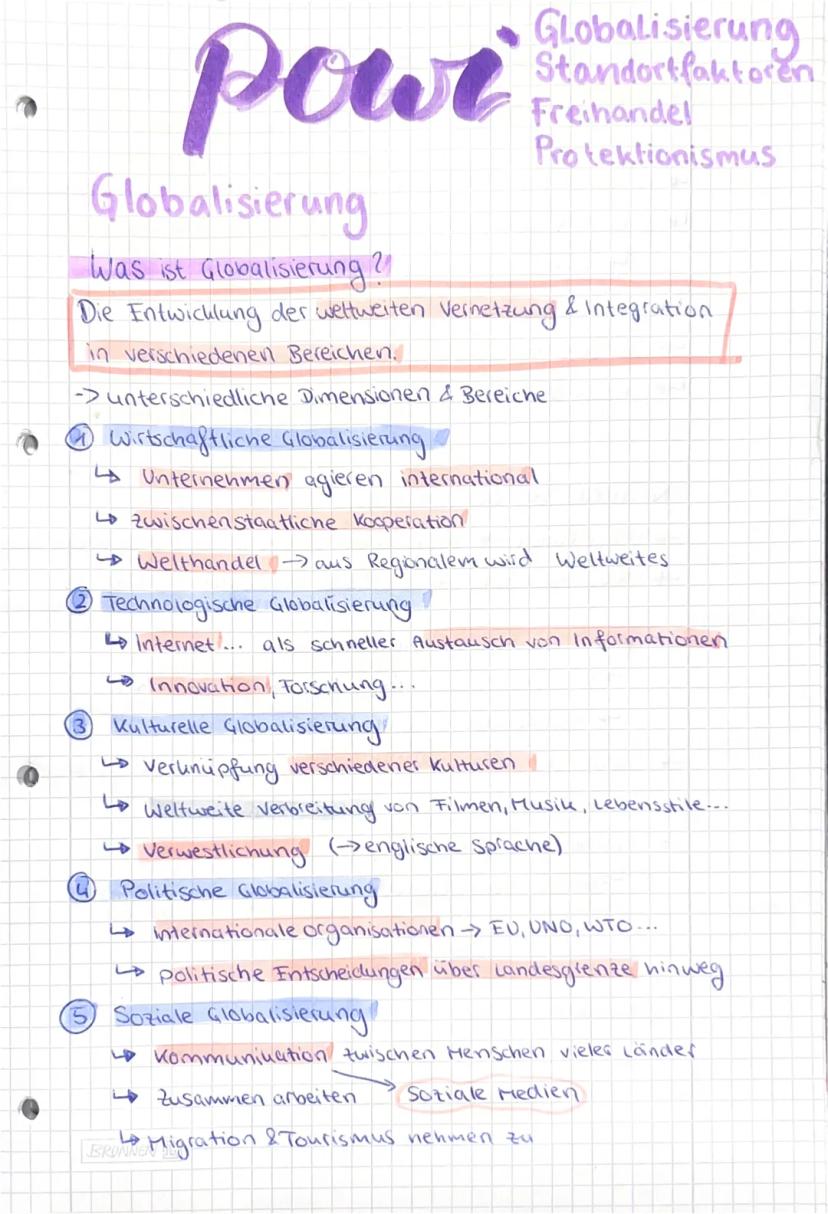 powi
Globalisierung
Standortfaktoren
Freihandel
Protektionismus
Globalisierung
Was ist Globalisierung?
Die Entwicklung der weltweiten Vernetzung & Integration
in verschiedenen Bereichen.
-> unterschiedliche Dimensionen & Bereiche
① Wirtschaftliche Globalisierung
↳ Unternehmen agieren international
↳ zwischenstaatliche Kooperation
↳ Welthandel -> aus Regionalem wird Weltweites
② Technologische Globalisierung
↳ Internet... als schneller Austausch von Informationen
↳ Innovation, Forschung...
③ Kulturelle Globalisierung
↳ Verknüpfung verschiedener Kulturen
↳ Weltweite Verbreitung von Filmen, Musik, Lebensstile...
↳ Verwestlichung (-> englische Sprache)
④ Politische Globalisierung
↳ internationale Organisationen -> EU, UNO, WTO...
↳ politische Entscheidungen über Landesgrenze hinweg
⑤ Soziale Globalisierung
↳ Kommunikation zwischen Menschen vieler Länder
↳ Zusammen arbeiten
Soziale Medien
↳ Migration & Tourismus nehmen zu
BRUNNEN